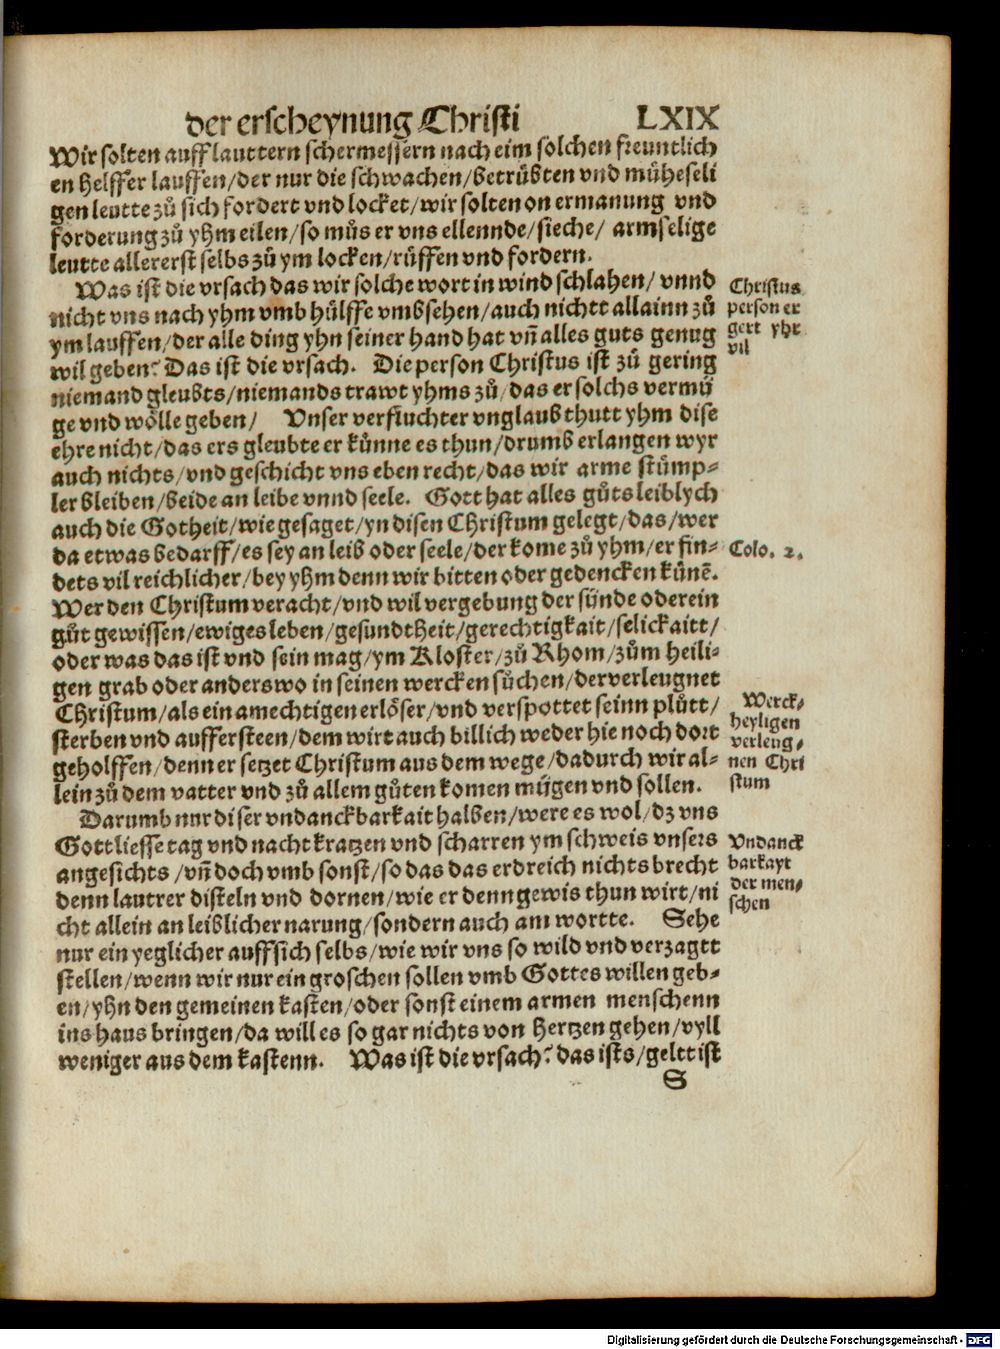 der erscheynung Christi LXIX
Wir solten auff lauttern schermessern nach eim solchen freuntlich
en helffer lauffen/der nur die schwachen/betrübten vnd müheseli
gen leutte zů sich fordert vnd locket/wir solten on ermanung vnd
forderung zů yhm eilen/so můs er vns ellennde/sieche/ armselige
leutte allererst selbs zů ym locken/rüffen vnd fordern.
Was ist die vrsach das wir solche wort in wind schlahen/ vnnd
nicht vns nach yhm vmb hülffe vmbsehen/auch nichtt allainn zů
ym lauffen/der alle ding yhn seiner hand hat vn̄ alles guts genug
wil geben? Das ist die vrsach. Die person Christus ist zů gering
niemand gleubts/niemands trawt yhms zů/das er solchs vermü
ge vnd wölle geben/ Vnser verfluchter vnglaub thutt yhm dise
ehre nicht/das ers gleubte er künne es thun/drumb erlangen wyr
auch nichts/vnd geschicht vns eben recht/das wir arme stümp⸗
ler bleiben/beide an leibe vnnd seele. Gott hat alles gůts leiblych
auch die Gotheit/wie gesaget/yn disen Christum gelegt/das/wer
da etwas bedarff/es sey an leib oder seele/der kome zů yhm/er fin⸗
dets vil reichlicher/bey yhm denn wir bitten oder gedencken künē.
Wer den Christum veracht/vnd wil vergebung der sünde oder ein
gůt gewissen/ewiges leben/gesundtheit/gerechtigkait/selickaitt/
oder was das ist vnd sein mag/ym Kloster/zů Rhom/zům heili⸗
gen grab oder anderswo in seinen wercken süchen/der verleugnet
Christum/als ein amechtigen erlöser/vnd verspottet seinn plůtt/
sterben vnd auffersteen/dem wirt auch billich weder hie noch dort
geholffen/denn er setzet Christum aus dem wege/dadurch wir al⸗
lein zů dem vatter vnd zů allem gůten komen mügen vnd sollen.
Darumb nur diser vndanckbarkait halben/were es wol/dz vns
Gott liesse tag vnd nacht kratzen vnd scharren ym schweis vnsers
angesichts /vn̄ doch vmb sonst/so das das erdreich nichts brecht
denn lautrer disteln vnd dornen/wie er denn gewis thun wirt/ni
cht allein an leiblicher narung/sondern auch am wortte. Sehe
nur ein yeglicher auff sich selbs/wie wir vns so wild vnd verzagtt
stellen/wenn wir nur ein groschen sollen vmb Gottes willen geb⸗
en/yhn den gemeinen kasten/oder sonst einem armen menschenn
ins haus bringen/da will es so gar nichts von hertzen gehen/vyll
weniger aus dem kastenn. Was ist die vrsach? das ists/geltt ist
S
Christus
person er
gert yhr
vil
Colo. 2.
Werck⸗
heyligen
verleug⸗
nen Chri
stum
Vndanck
barkayt
der men⸗
schen
Digitalisierung gefördert durch die Deutsche Forschungsgemeinschaft - DFG